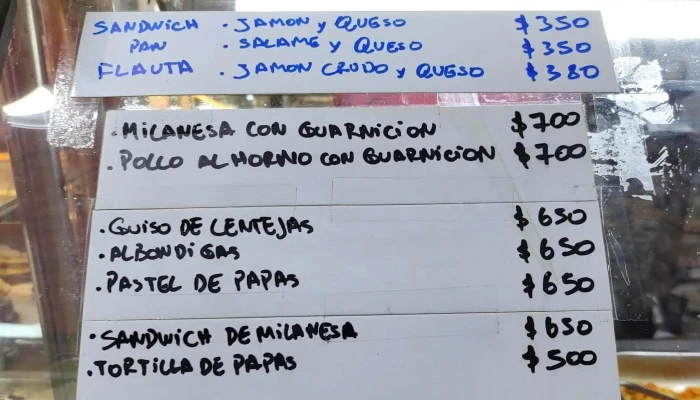 SANDWICH · JAMON y QUESO $350
PAN · SALAME y QUESO $350
FLAUTA · JAMON CRUDO y QUESO $380
· MILANESA CON GUARNICION $700
· POLLO AL HORNO CON GUARNICION $700
· GUISO DE LENTEJAS $650
· ALBONDIGAS $650
· PASTEL DE PAPAS $650
· SANDWICH DE MILANESA $650
· TORTILLA DE PAPAS $500